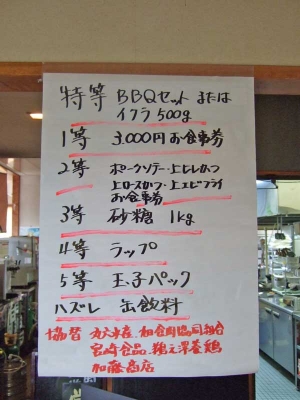 特等 BBQセット または
イクラ500g
1等 3.000円お食事券
2等 ポークソテー・上ヒレかつ
上ロースかつ・上エビフライ
お食事券
3等 砂糖 1kg
4等 ラップ
5等 玉子パック
ハズレ 缶飲料
協替 カネ水産、和食肉協同組合
宮崎食品、鶏之澤養鶏
加藤商店